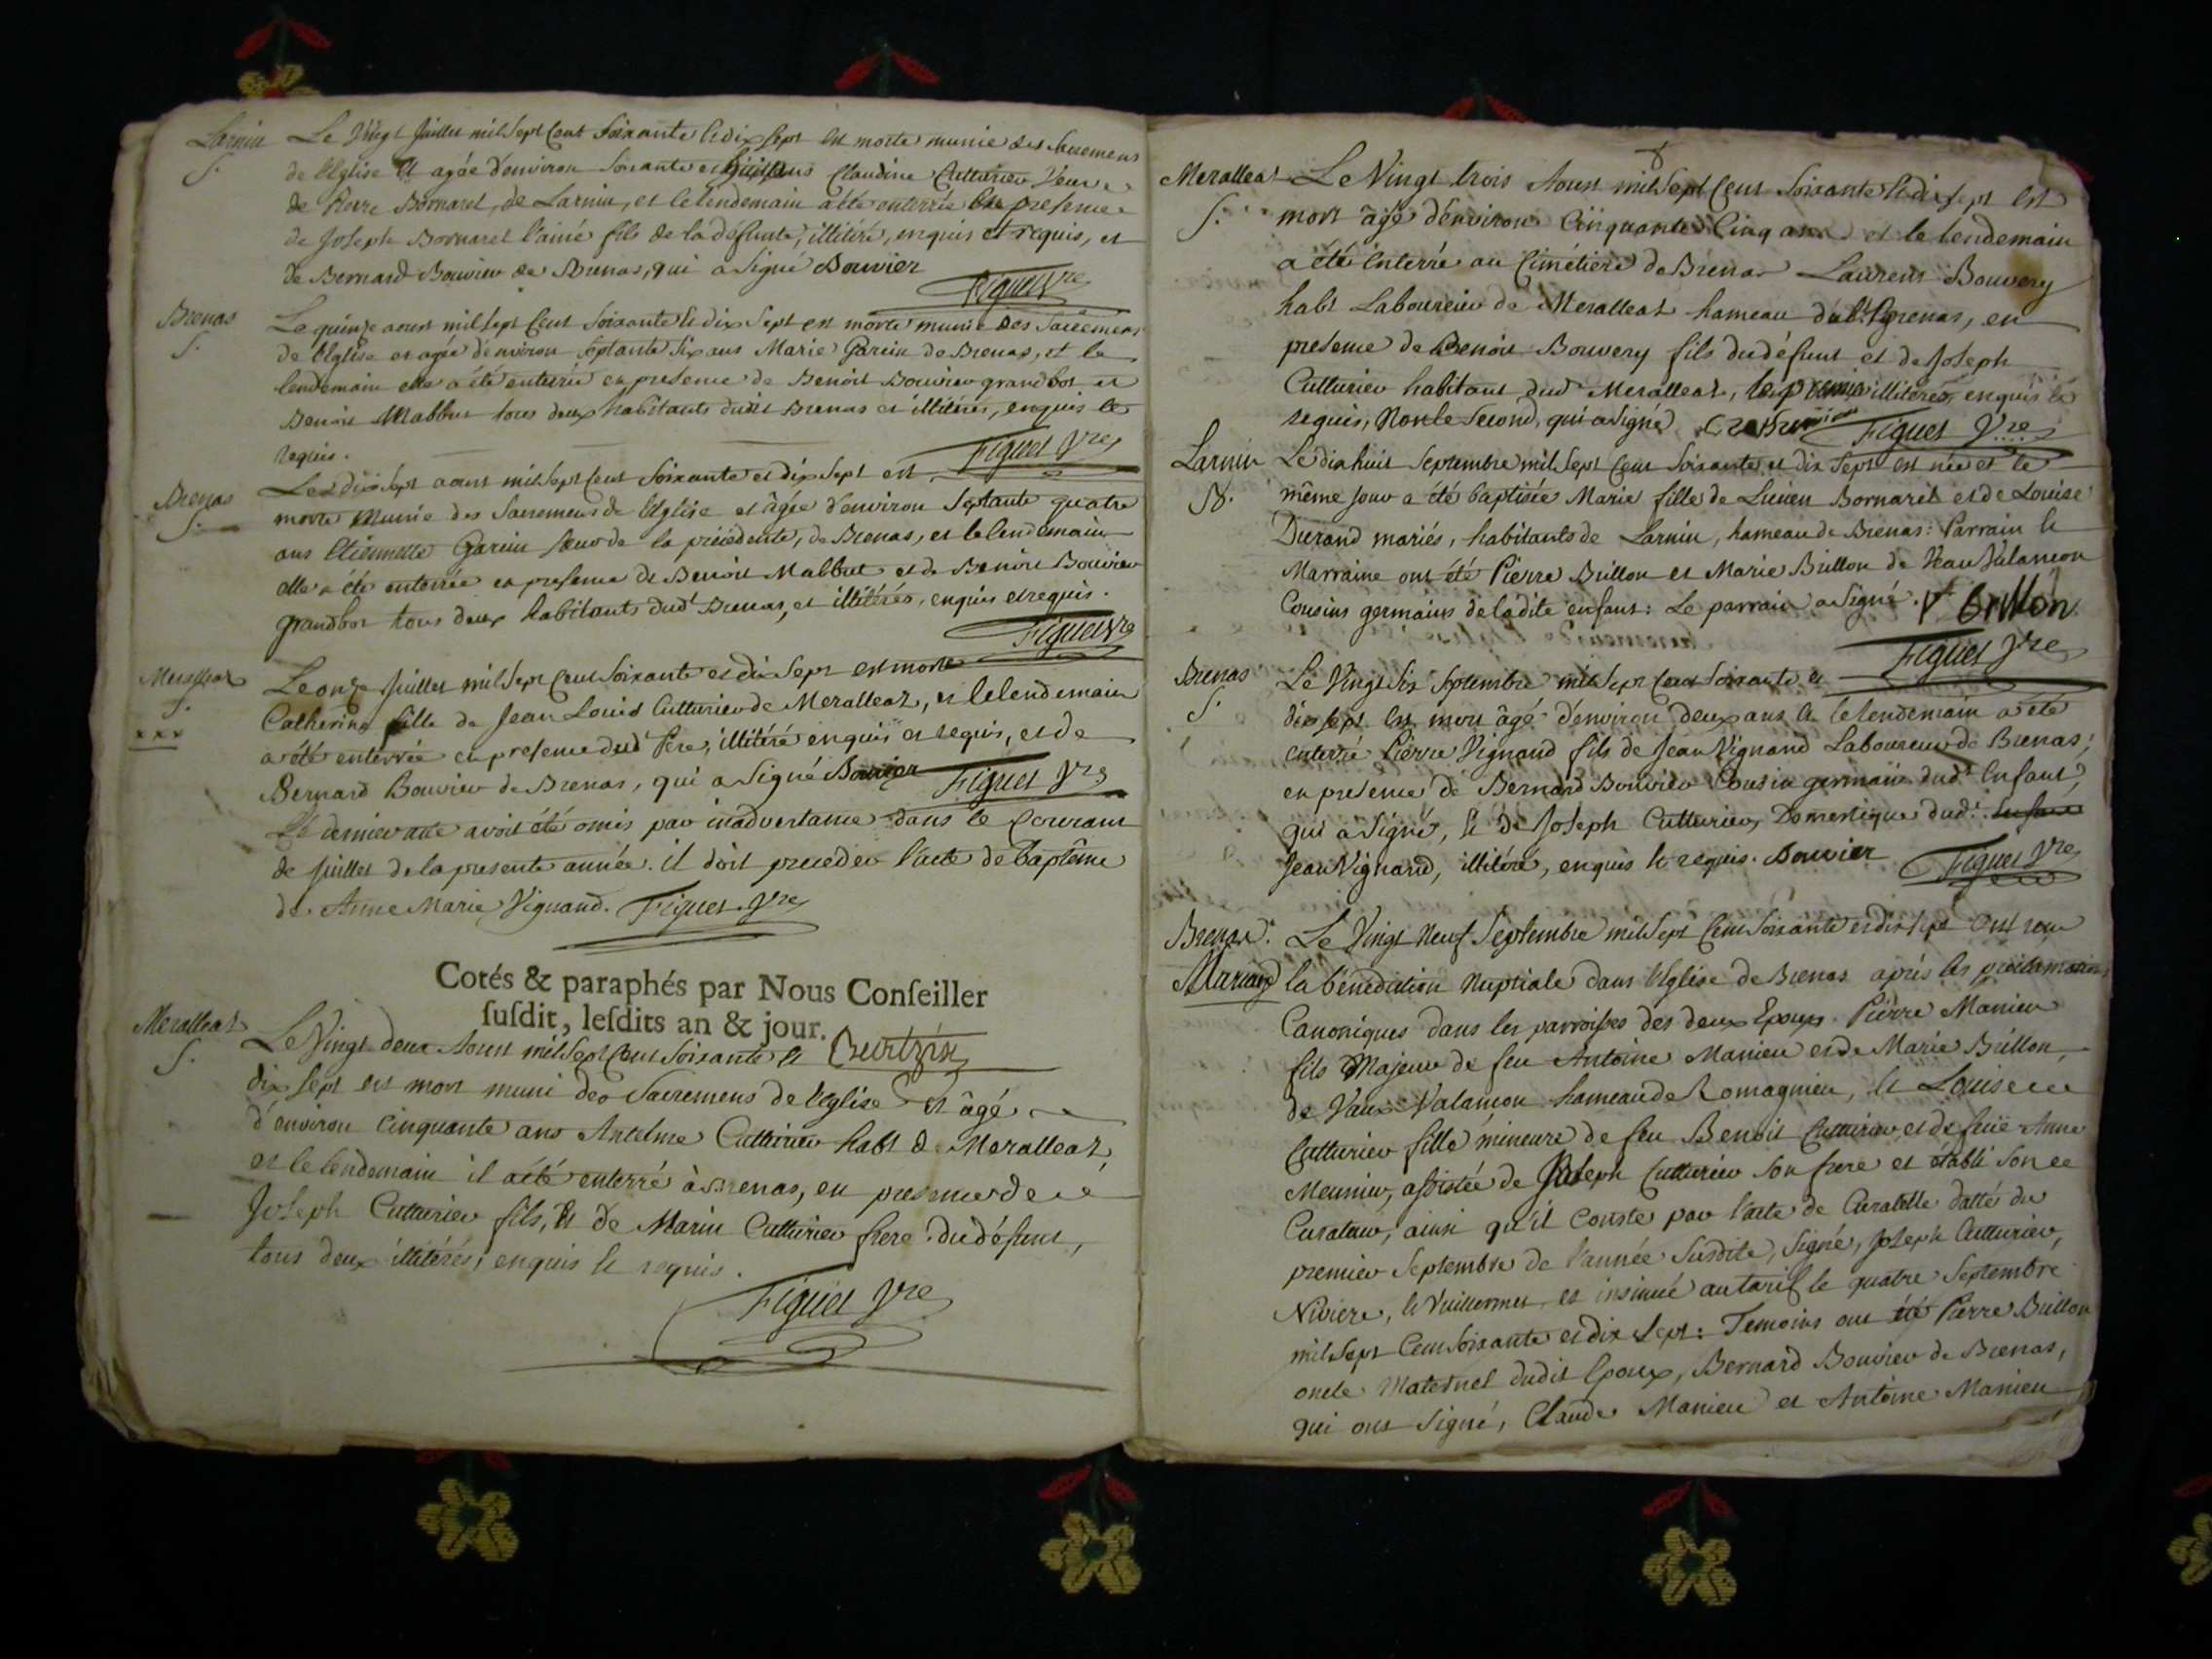 Larnin Le Vingt Juillet mil Sept Cent Soixante et dix sept est morte munie des Sacremens
S. de l'Eglise et agée d'environ Soixante et huit ans Claudine Cutturier Veuve
de Pierre Bornaret, de Larnin, et le lendemain a été enterrée en presence
de Joseph Bornaret l'ainé fils de la défunte, illitéré, enquis et requis, et
de Bernard Bouvier de Brenas, qui a signé Bouvier
Figuet Vre
Brenas Le quinze aoust mil sept Cent Soixante et dix Sept est morte munie des Sacremens
S. de l'Eglise et agée d'environ septante six ans Marie Garein de Brenas, et le
lendemain elle a été enterrée en presence de Benoit Bouvier grandbot et
Benoit Mabbut tous deux habitants dudit Brenas et illitérés, enquis et
requis. Figuet Vre
Brenas Le dix Sept aoust mil Sept Cent Soixante et dix Sept est
S. morte Munie des Sacremens de l'Eglise et âgée d'environ Septante quatre
ans Etiennette Garein soeur de la précédente, de Brenas, et le lendemain
elle a été enterrée en presence de Benoit Mabbut et de Benoit Bouvier
grandbot tous deux habitants dud.t Brenas, et illitérés, enquis et requis.
Figuet Vre
Meralleaz Le onze Juillet mil Sept Cent Soixante et dix Sept est morte
S. Catherine fille de Jean Louis Cutturier de Meralleaz, et le lendemain
xxx a été enterrée en presence dud.t Pere, illitéré enquis et requis, et de
Bernard Bouvier de Brenas, qui a signé Bouvier Figuet Vre
Le dernier acte avoit été omis par inadvertance dans le Courant
de Juillet de la presente année. il doit preceder l'acte de Baptême
de Anne Marie Vignand. Figuet Vre
Cotés & paraphés par Nous Conseiller
susdit, lesdits an & jour.
Meralleaz Le Vingt deux Aoust mil Sept Cent Soixante et
S. dix sept est mort muni des Sacremens de l'Eglise et âgé
d'environ Cinquante ans Antelme Cutturier habt de Meralleaz,
et le lendemain il a été enterré à Brenas, en presence de
Joseph Cutturier fils, et de Marin Cutturier frere du défunt,
tous deux illitérés, enquis et requis.
Figuet Vre
Meralleaz Le Vingt trois Aoust mil Sept Cent Soixante et dix sept est
S. mort âgé d'environ Cinquante Cinq ans et le lendemain
a été enterré au Cimétiere de Brenas Laurent Bouvery
habt Laboureur de Meralleaz hameau dud.t Brenas, en
presence de Benoit Bouvery fils du défunt et de Joseph
Cutturier habitant dud.t Meralleaz, le premier illitéré, enquis et
requis, Non le Second, qui a signé Figuet Vre
Larnin Le dix huit Septembre mil Sept Cent Soixante et dix Sept est née et le
B. même jour a été baptisée Marie fille de Lucien Bornaret et de Louise
Durand mariés, habitants de Larnin, hameau de Brenas: Parrain et
Marraine ont été Pierre Brillon et Marie Brillon de Vau Valancon
Cousins germains de ladite enfant: Le parrain a signé. P Brillon
Figuet Vre
Brenas Le Vingt Six Septembre mil Sept Cent Soixante et
S. dix Sept est mort âgé d'environ deux ans et le lendemain a été
enterré Pierre Vignand fils de Jean Vignand Laboureur de Brenas,
en presence de Bernard Bouvier Cousin germain dud.t Enfant,
qui a signé, et de Joseph Cutturier, Domestique dud.t Enfant
Jean Vignand, illitéré, enquis et requis. Bouvier Figuet Vre
Brenas. Le Vingt Neuf Septembre mil Sept Cent Soixante et dix sept ont reçu
Mariage la bénédiction Nuptiale dans l'Eglise de Brenas après les proclamations
Canoniques dans les parroisses des deux Epoux. Pierre Manieu
fils Majeur de feu Antoine Manieu et de Marie Brillon,
de Vaux Valancon hameau de Romagnieu, et Louise
Cutturier fille mineure de feu Benoit Cutturier et de feüe Anne
Meunier, assistée de Joseph Cutturier Son frere et établi Son
Curateur, ainsi qu'il Conste par l'acte de Curatelle datté du
premier Septembre de l'année Susdite, Signé, Joseph Cutturier,
Niviere, et Vuillermet et insinué au tarif le quatre Septembre
mil Sept Cent Soixante et dix Sept: Temoins ont été Pierre Brillon
oncle Maternel dudit Epoux, Bernard Bouvier de Brenas,
qui ont Signé, Claude Manieu et Antoine Manieu